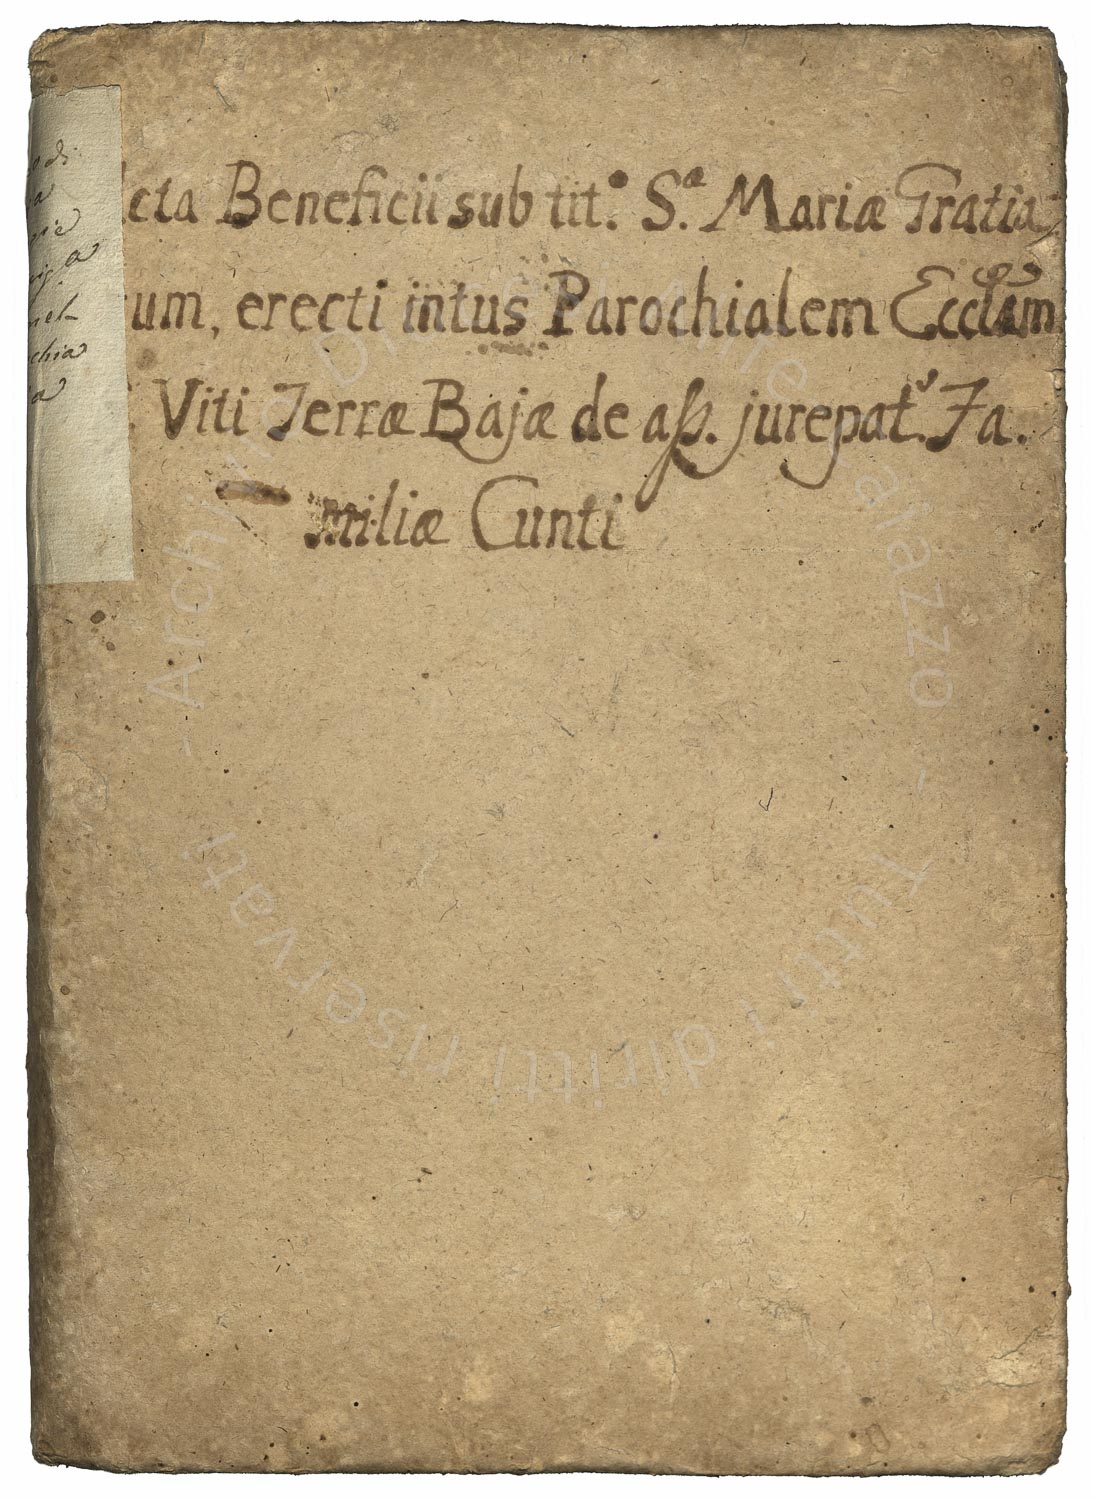 o di
a
rie
rig.a
nel
chia
ia
cta Beneficii sub tit.º S.æ Mariæ Gratia
rum, erecti intus Parochialem Ecclām
. Viti Terræ Bajæ de aſſ. jurepat.ᵛ Fa.
miliæ Cunti
Archivio Diocesi Alife Caiazzo - Tutti i diritti riservati -